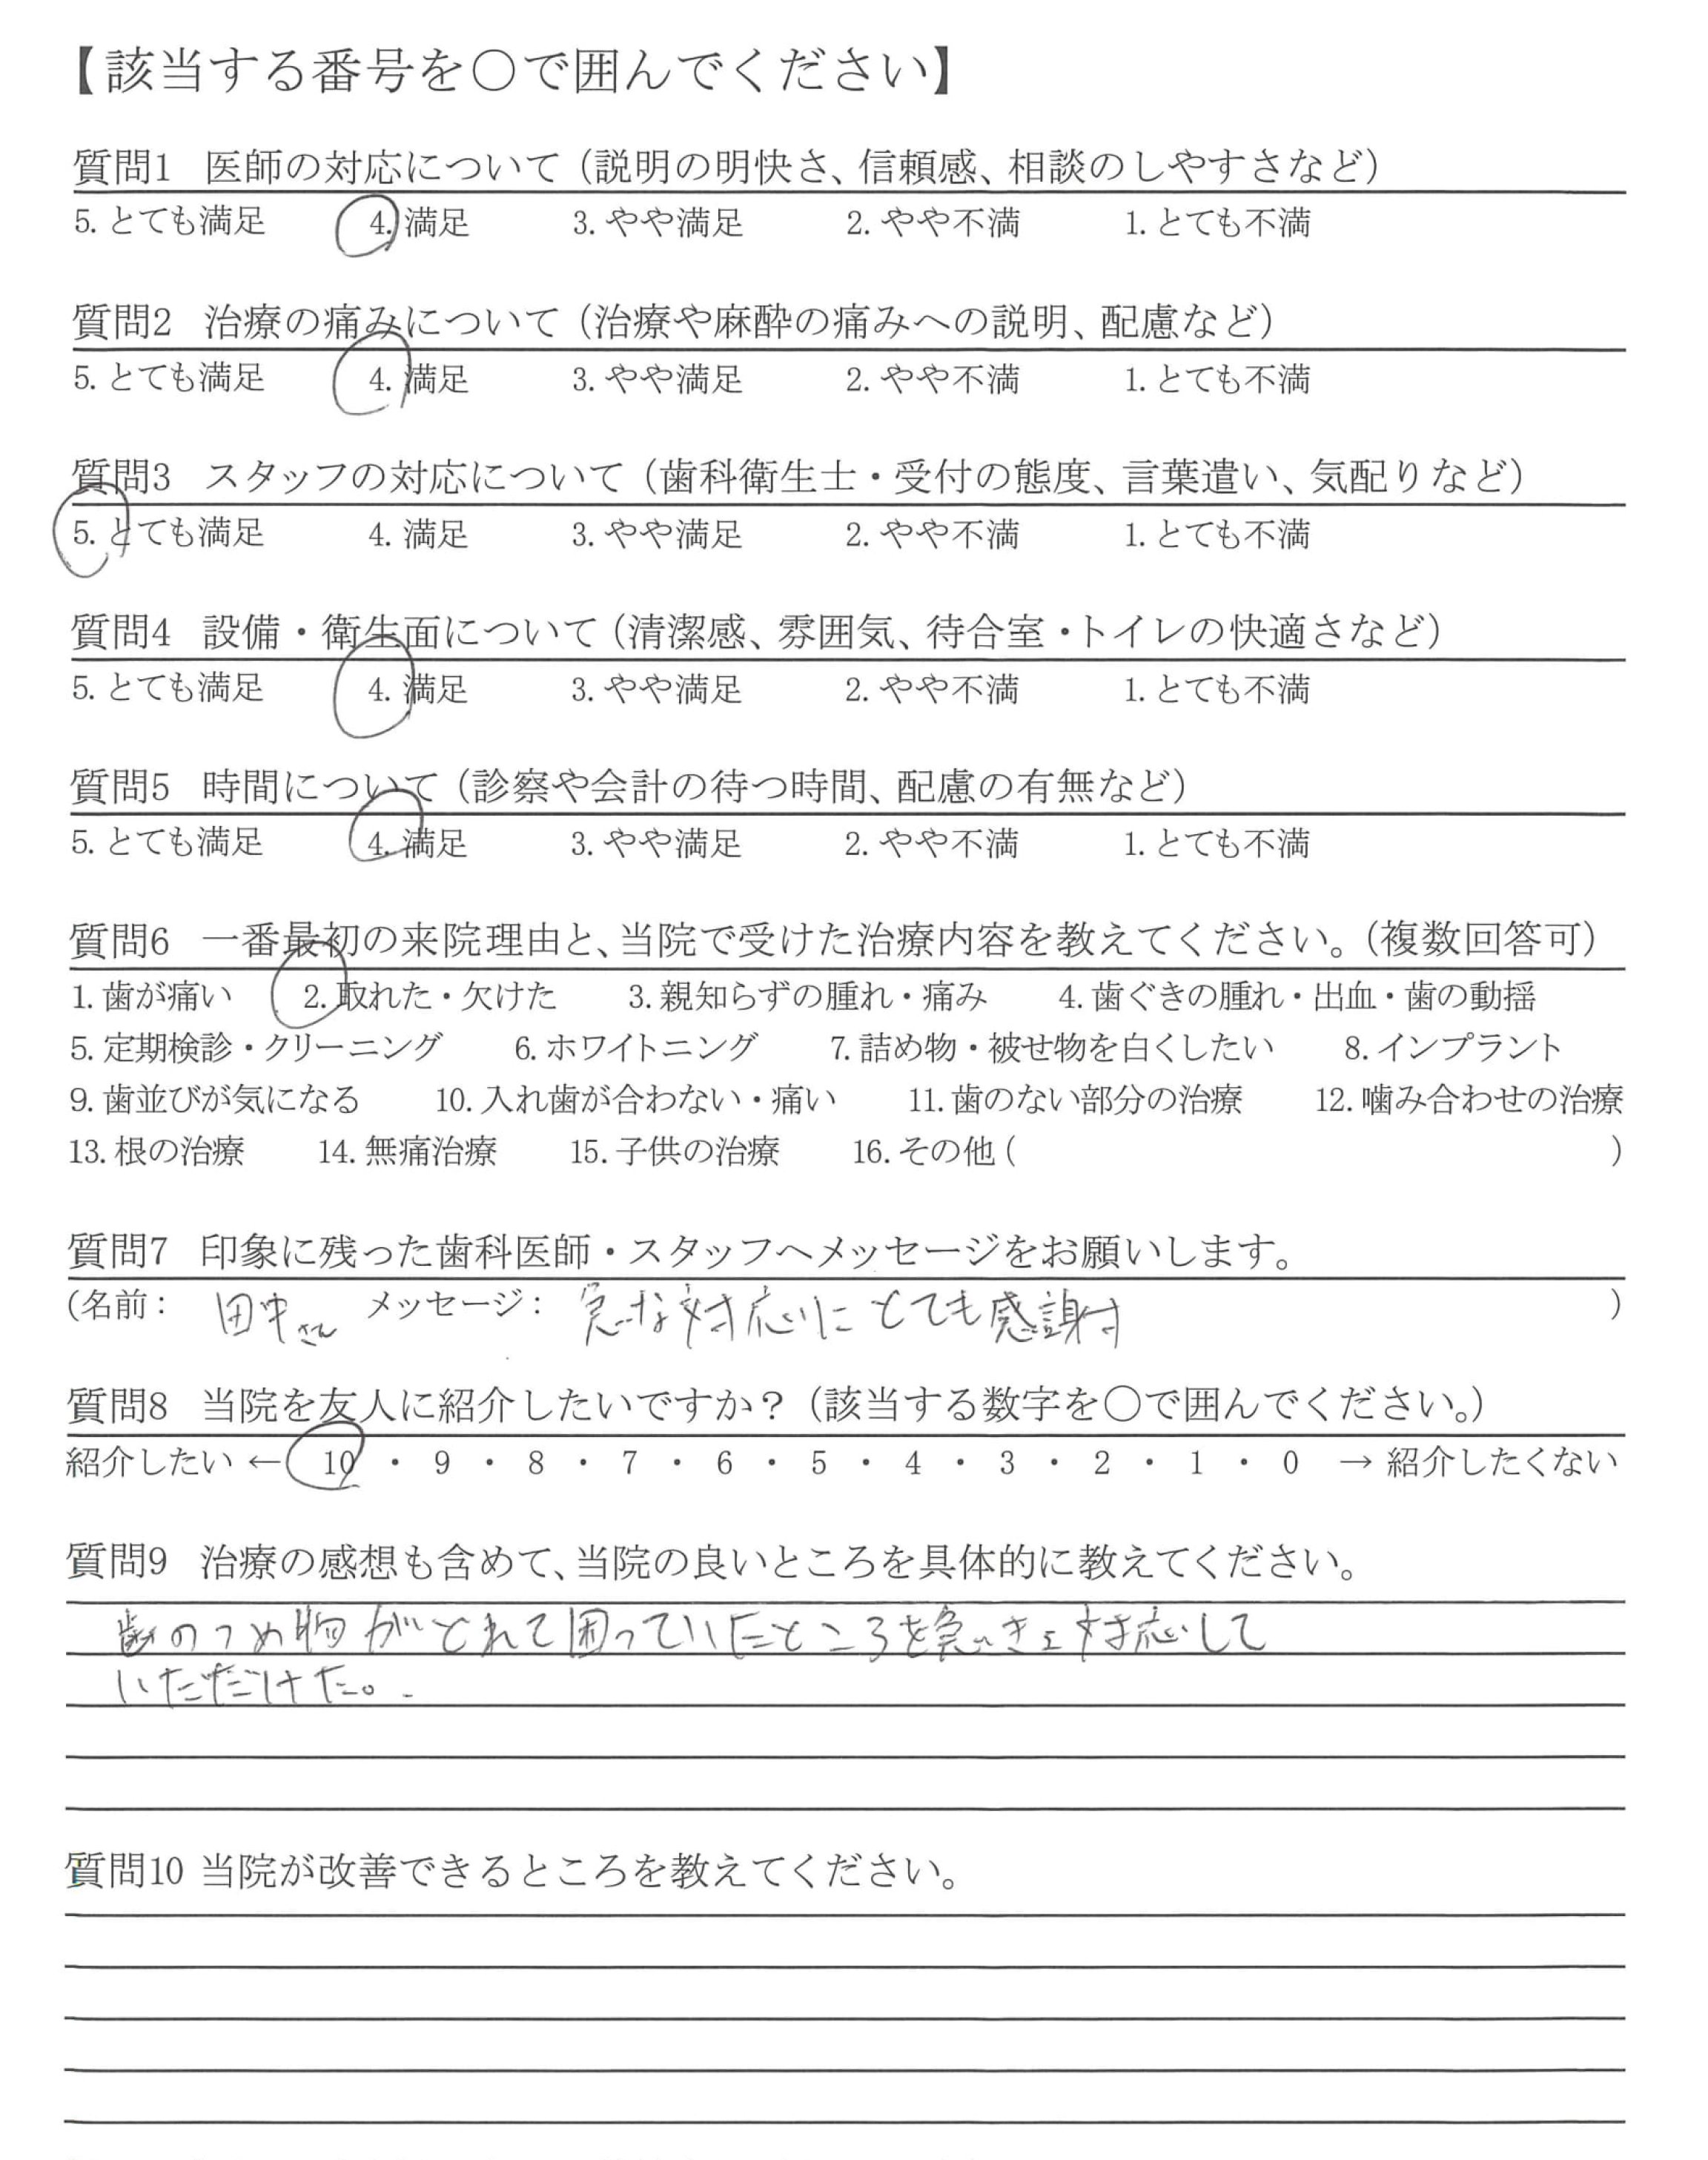 【該当する番号を〇で囲んでください】
質問1 医師の対応について（説明の明快さ、信頼感、相談のしやすさなど）
5. とても満足 4. 満足 3. やや満足 2. やや不満 1. とても不満
質問2 治療の痛みについて（治療や麻酔の痛みへの説明、配慮など）
5. とても満足 4. 満足 3. やや満足 2. やや不満 1. とても不満
質問3 スタッフの対応について（歯科衛生士・受付の態度、言葉遣い、気配りなど）
5. とても満足 4. 満足 3. やや満足 2. やや不満 1. とても不満
質問4 設備・衛生面について（清潔感、雰囲気、待合室・トイレの快適さなど）
5. とても満足 4. 満足 3. やや満足 2. やや不満 1. とても不満
質問5 時間について（診察や会計の待つ時間、配慮の有無など）
5. とても満足 4. 満足 3. やや満足 2. やや不満 1. とても不満
質問6 一番最初の来院理由と、当院で受けた治療内容を教えてください。（複数回答可）
1. 歯が痛い 2. 取れた・欠けた 3. 親知らずの腫れ・痛み 4. 歯ぐきの腫れ・出血・歯の動揺
5. 定期検診・クリーニング 6. ホワイトニング 7. 詰め物・被せ物を白くしたい 8. インプラント
9. 歯並びが気になる 10. 入れ歯が合わない・痛い 11. 歯のない部分の治療 12. 噛み合わせの治療
13. 根の治療 14. 無痛治療 15. 子供の治療 16. その他 ( )
質問7 印象に残った歯科医師・スタッフへメッセージをお願いします。
(名前： 田中さん メッセージ： 急な対応にとても感謝 )
質問8 当院を友人に紹介したいですか？（該当する数字を〇で囲んでください。）
紹介したい ← 10 ・ 9 ・ 8 ・ 7 ・ 6 ・ 5 ・ 4 ・ 3 ・ 2 ・ 1 ・ 0 → 紹介したくない
質問9 治療の感想も含めて、当院の良いところを具体的に教えてください。
歯のつめ物がとれて困っていたところを急きょ対応して
いただけた。
質問10 当院が改善できるところを教えてください。